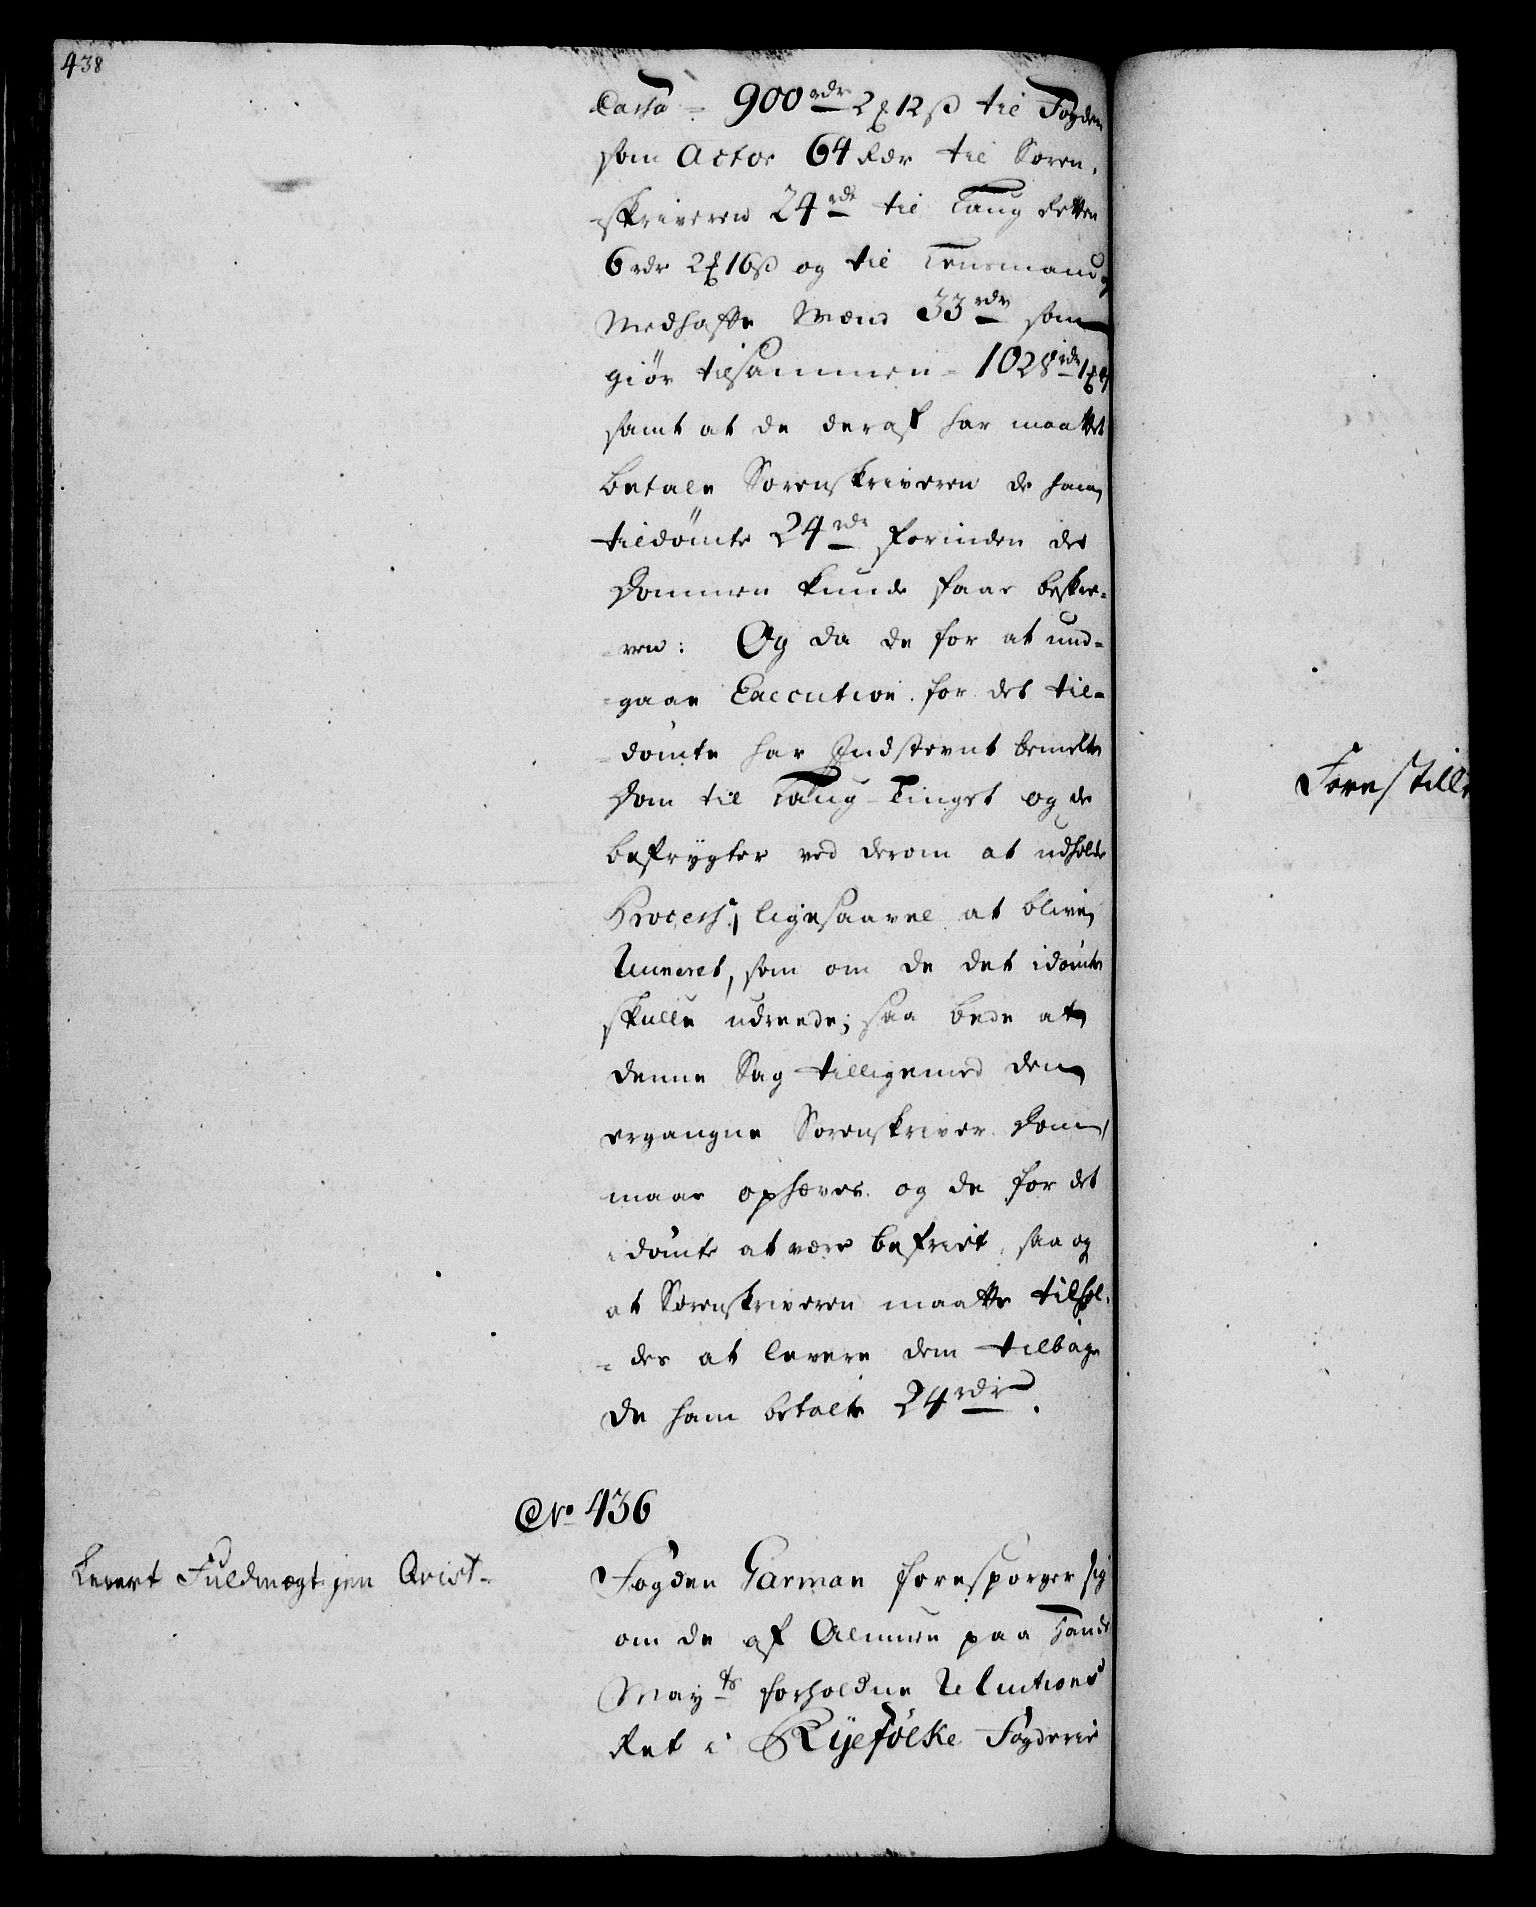 438
Cassa - 900 rdr 2 12 ß til Fogden
som Actor 64 Rdr til Soren-
-skriveren 24 rdr til Laug Retten
6 rdr 2 16 ß og til Lensmand og
Medhafte Mænd 33 rdr som
giør tilsammen - 1028 rdr 1
samt at de deraf har maattet
betale Sorenskriveren de ham
tildømte 24 rdr forinden de
Dommen kunde faae beskre-
-ven: Og da de for at und-
-gaae Execution for det til-
-dømte har Indstevnt bemelte
Dom til Laug-Tinget og de
befrygter ved derom at udholde
Process, ligesaavel at blive
Ruineret, som om de det idømte
skulle udreede; saa bede at
denne Sag tilligemed den
ergangne Sorenskriver Dom,
maae ophæves og de for det
idømte at være befriet, saa og
at Sorenskriveren maatte tilhol-
-des at levere dem tilbage
de ham betalte 24 rdr.
No 436
Levert Fuldmægtigen Qvist-
Fogden Garman forespørger sig
om de af Almuen paa Hands
Mayts forholdne Relutions
Ret i Ryefølke Fogderie
Forestille